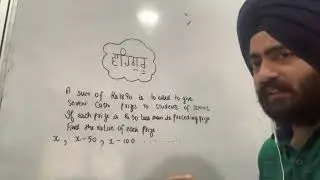 ਵਾਹਿਗੁਰੂ
A sum of Rs 1890 is to used to give
seven Cash prizes to students of school
If each prize is Rs 50 less than its preceding prize
find the value of each prize
x, x-50, x-100 ........